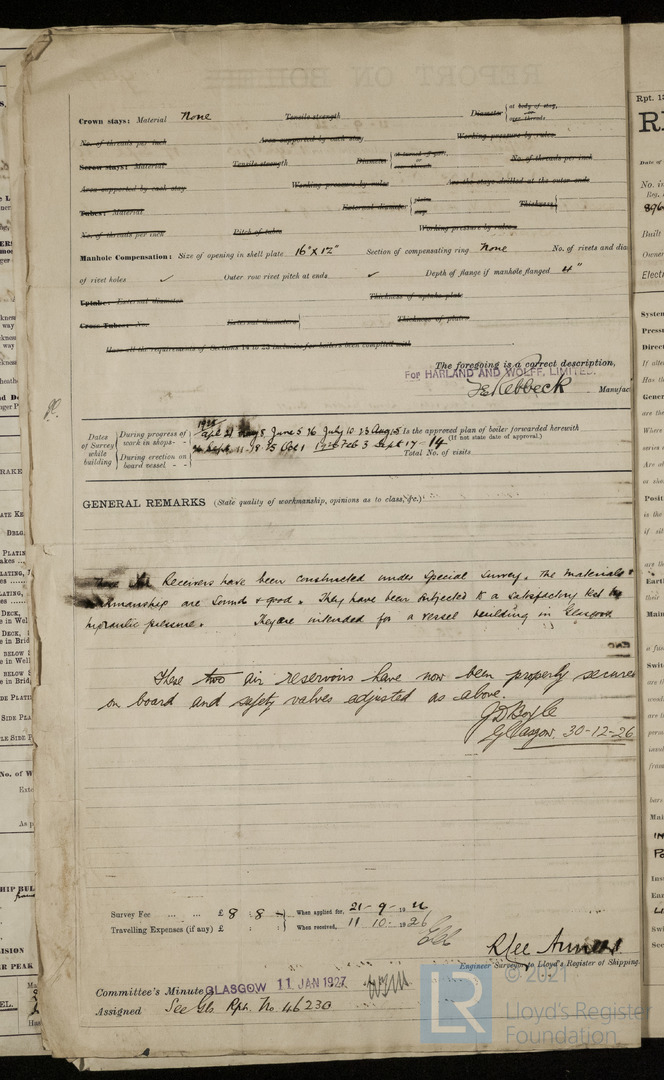 Crown stays: Material None Tensile strength Diameter { at body of stay, over threads
No. of threads per inch Area supported by each stay Working pressure by rules
Screw stays: Material Tensile strength Diameter No. of threads per inch
Area supported by each stay Working pressure by rules Are the stays drilled at the outer ends
Tubes: Material External diameter { plain stay Thickness {
No. of threads per inch Pitch of tubes Working pressure by rules
Manhole Compensation: Size of opening in shell plate 16" X 12" Section of compensating ring None No. of rivets and dia
of rivet holes ✓ Outer row rivet pitch at ends ✓ Depth of flange if manhole flanged 4"
Uptake: External diameter Thickness of uptake plate
Cross Tubes: No. External diameters Thickness of plates
Have all the requirements of Sections 14 to 23 inclusive for boilers been complied with
The foregoing is a correct description,
For HARLAND AND WOLFF, LIMITED.
Rebbeck Manufac
Dates of Survey while building
During progress of work in shops - -
1925 Apl 21 May 8 June 5 26 July 10 23 Aug
Is the approved plan of boiler forwarded herewith
(If not state date of approval.)
During erection on board vessel - -
Sept 11 18 Oct 1 Feb 3 Sept 17 - 14 Total No. of visits
GENERAL REMARKS (State quality of workmanship, opinions as to class, &c.)
Receivers have been constructed under Special Survey. The materials &
workmanship are sound & good. They have been subjected to a satisfactory test by
hydraulic pressure. They are intended for a vessel building in Glasgow
These two air reservoirs have now been properly secured
on board and safety valves adjusted as above.
J D Boyle
Glasgow. 30-12-26
Survey Fee ... ... £ 8 : 8 : - When applied for, 21 - 9 - 19
Travelling Expenses (if any) £ : : When received, 11 10 1926
R Lee
Engineer Surveyor to Lloyd's Register of Shipping.
Committee's Minute GLASGOW 11 JAN 1927
Assigned See Gls Rpt. No. 46230
© 2021
LR
Lloyd's Register
Foundation